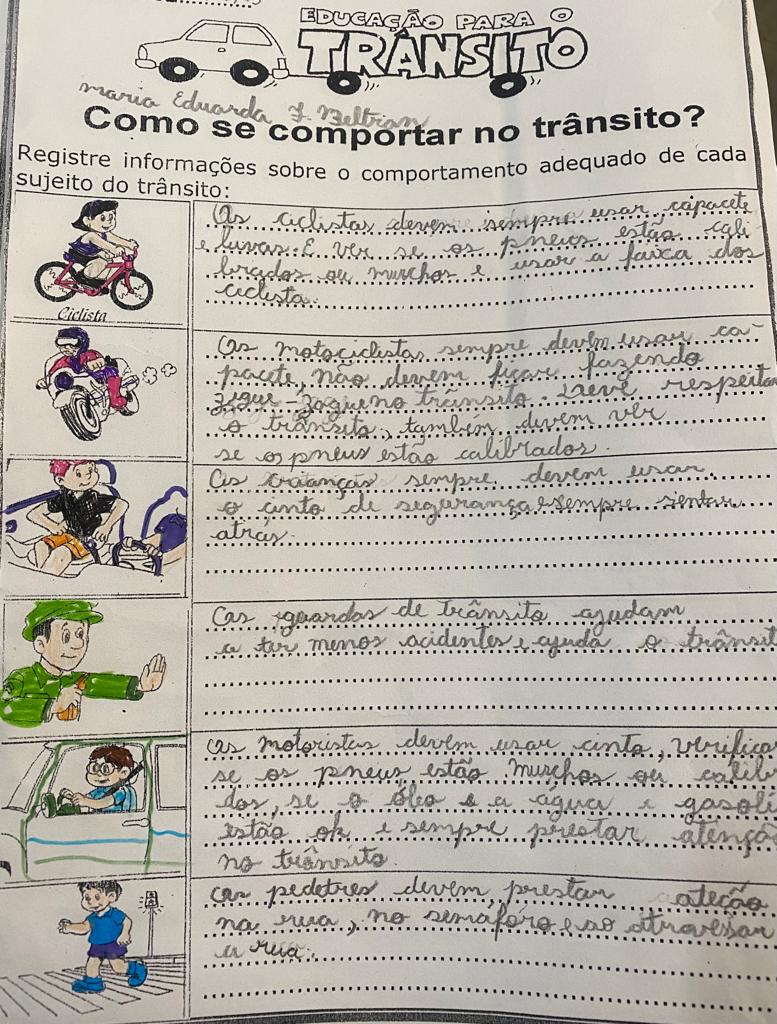 EDUCAÇÃO PARA O
TRÂNSITO
maria Eduarda F. Beltrian
Como se comportar no trânsito?
Registre informações sobre o comportamento adequado de cada
sujeito do trânsito:
Os ciclistas devem sempre usar capacete
e luvas. E ver se os pneus estão cali
brados ou murchos e usar a faixa dos
ciclista.
Ciclista
Os motociclistas sempre devem usar ca-
pacete, não devem ficar fazendo
zigue-zague no trânsito. Deve respeitar
o trânsito, também devem ver
se os pneus estão calibrados.
As crianças sempre devem usar
o cinto de segurança e sempre sentar
atrás.
Os guardas de trânsito ajudam
a ter menos acidentes e ajuda o trânsit
Os motoristas devem usar cinto, verificar
se os pneus estão murchos ou calib
dos, se o óleo e a água e gasoli
estão ok e sempre prestar atenção
no trânsito.
Os pedetres devem prestar ateção
na rua, no semáforo e ao atravessar
a rua.